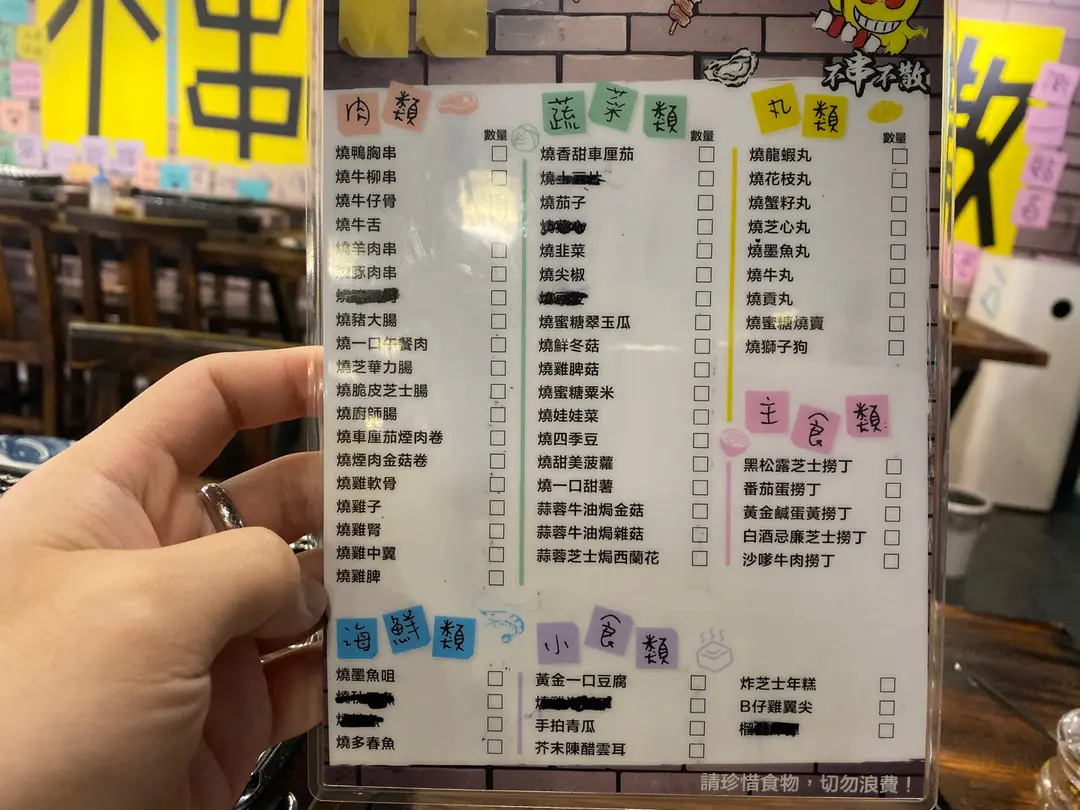 不串不散
肉類
數量
燒鴨胸串
燒牛柳串
燒牛仔骨
燒牛舌
燒羊肉串
豚肉串
燒豬大腸
燒一口午餐肉
燒芝華力腸
燒脆皮芝士腸
燒廚師腸
燒車厘茄煙肉卷
燒煙肉金菇卷
燒雞軟骨
燒雞子
燒雞腎
燒雞中翼
燒雞脾
蔬菜類
數量
燒香甜車厘茄
燒
燒茄子
燒韭菜
燒尖椒
燒蜜糖翠玉瓜
燒鮮冬菇
燒雞脾菇
燒蜜糖粟米
燒娃娃菜
燒四季豆
燒甜美菠蘿
燒一口甜薯
蒜蓉牛油焗金菇
蒜蓉牛油焗雜菇
蒜蓉芝士焗西蘭花
丸類
數量
燒龍蝦丸
燒花枝丸
燒蟹籽丸
燒芝心丸
燒墨魚丸
燒牛丸
燒貢丸
燒蜜蠔燒賣
燒獅子狗
主食類
黑松露芝士撈丁
番茄蛋撈丁
黃金鹹蛋黃撈丁
白酒忌廉芝士撈丁
沙嗲牛肉撈丁
海鮮類
燒墨魚咀
燒多春魚
小食類
黃金一口豆腐
手拍青瓜
芥末陳醋雲耳
炸芝士年糕
B仔雞翼尖
榴
請珍惜食物，切勿浪費！